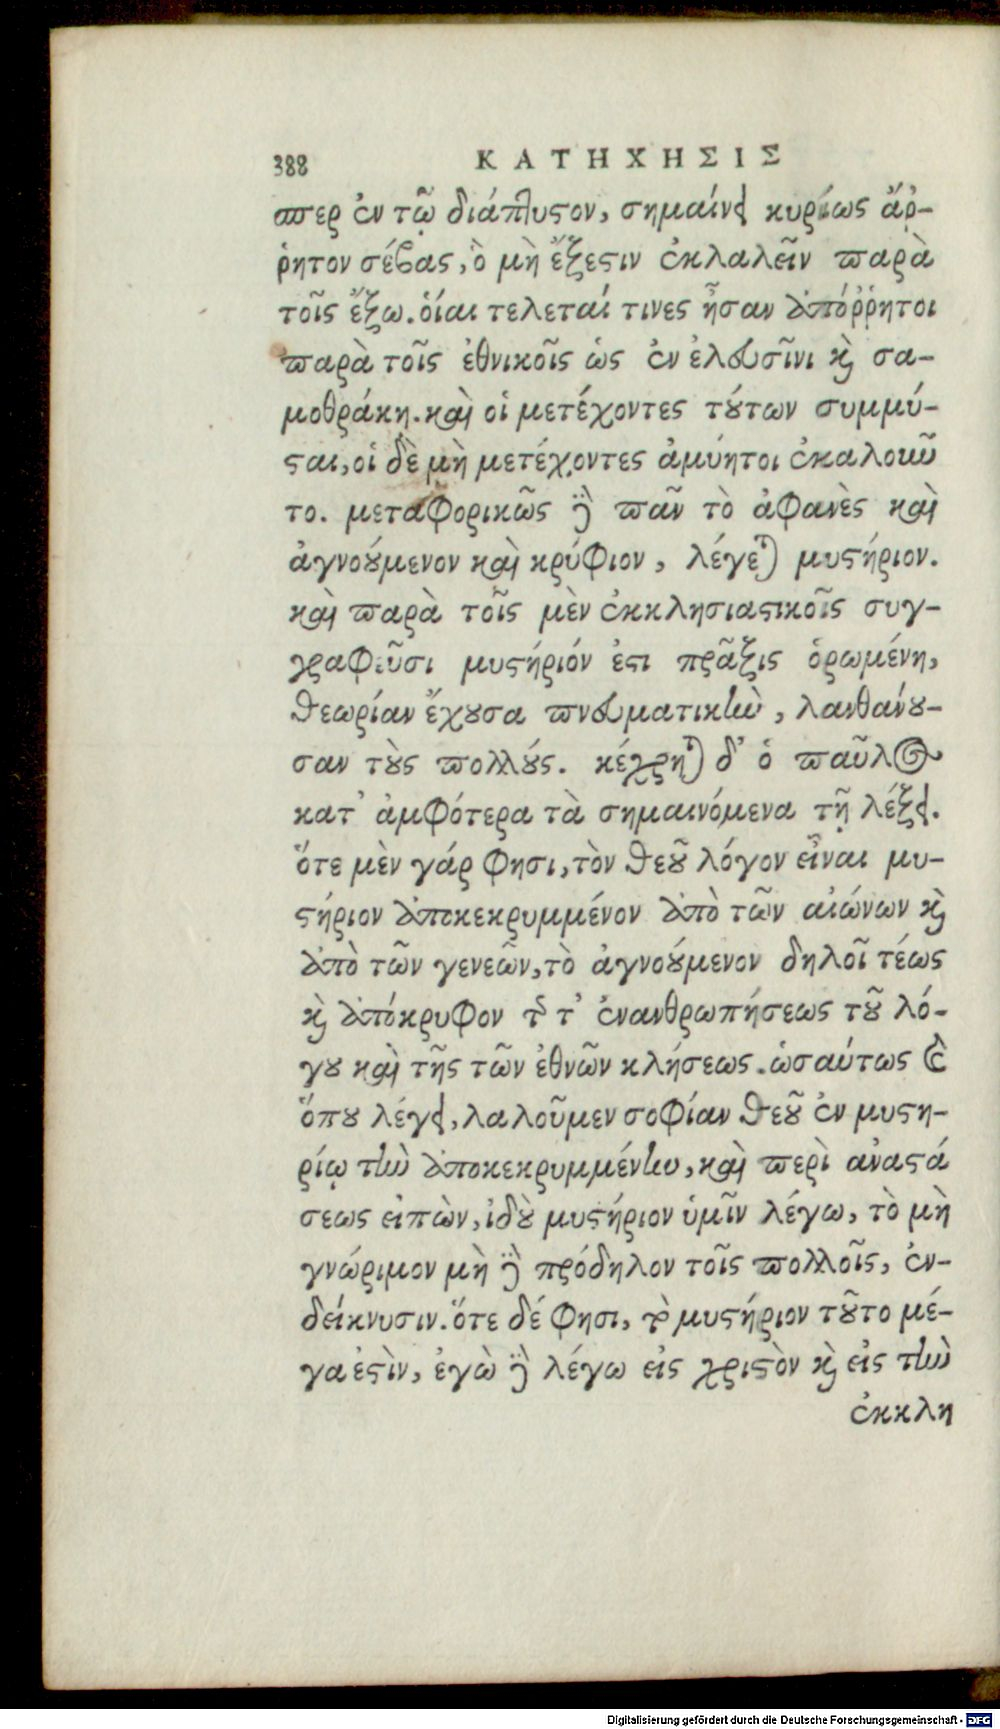 388 ΚΑΤΗΧΗΣΙΣ
περ ἐν τῷ διάπλυστον, σημαίνει κυρίως ἄῤ-
ῥητον σέβας, ὃ μὴ ἔξεστιν ἐκλαλεῖν παρὰ
τοῖς ἔξω. οἷαι τελεταί τινες ἦσαν ἀπόῤῥητοι
παρὰ τοῖς ἐθνικοῖς ὡς ἐν ἐλευσῖνι καὶ σα-
μοθράκῃ. καὶ οἱ μετέχοντες τούτων συμμύ-
σται, οἱ δὲ μὴ μετέχοντες ἀμύητοι ἐκαλοῦν
το. μεταφορικῶς δὲ πᾶν τὸ ἀφανὲς καὶ
ἀγνούμενον καὶ κρύφιον, λέγεται μυστήριον.
καὶ παρὰ τοῖς μὲν ἐκκλησιαστικοῖς συγ-
γραφεῦσι μυστήριόν ἐστι πρᾶξις ὁρωμένη,
θεωρίαν ἔχουσα πνευματικὴν, λανθάνου-
σαν τοὺς πολλούς. κέχρηται δ’ ὁ παῦλος
κατ’ ἀμφότερα τὰ σημαινόμενα τῇ λέξει.
ὅτε μὲν γάρ φησι, τὸν θεοῦ λόγον εἶναι μυ-
στήριον ἀποκεκρυμμένον ἀπὸ τῶν αἰώνων καὶ
ἀπὸ τῶν γενεῶν, τὸ ἀγνούμενον δηλοῖ τέως
καὶ ἀπόκρυφον τῆς τ’ ἐνανθρωπήσεως τοῦ λό-
γου καὶ τῆς τῶν ἐθνῶν κλήσεως. ὡσαύτως καὶ
ὅπου λέγει, λαλοῦμεν σοφίαν θεοῦ ἐν μυστη-
ρίῳ τὴν ἀποκεκρυμμένην, καὶ περὶ ἀναστά
σεως εἰπὼν, ἰδοὺ μυστήριον ὑμῖν λέγω, τὸ μὴ
γνώριμον μὴ δὲ πρόδηλον τοῖς πολλοῖς, ἐν-
δείκνυσιν. ὅτε δέ φησι, τὸ μυστήριον τοῦτο μέ-
γα ἐστὶν, ἐγὼ δὲ λέγω εἰς χριστὸν καὶ εἰς τὴν
ἐκκλη
Digitalisierung gefördert durch die Deutsche Forschungsgemeinschaft - DFG